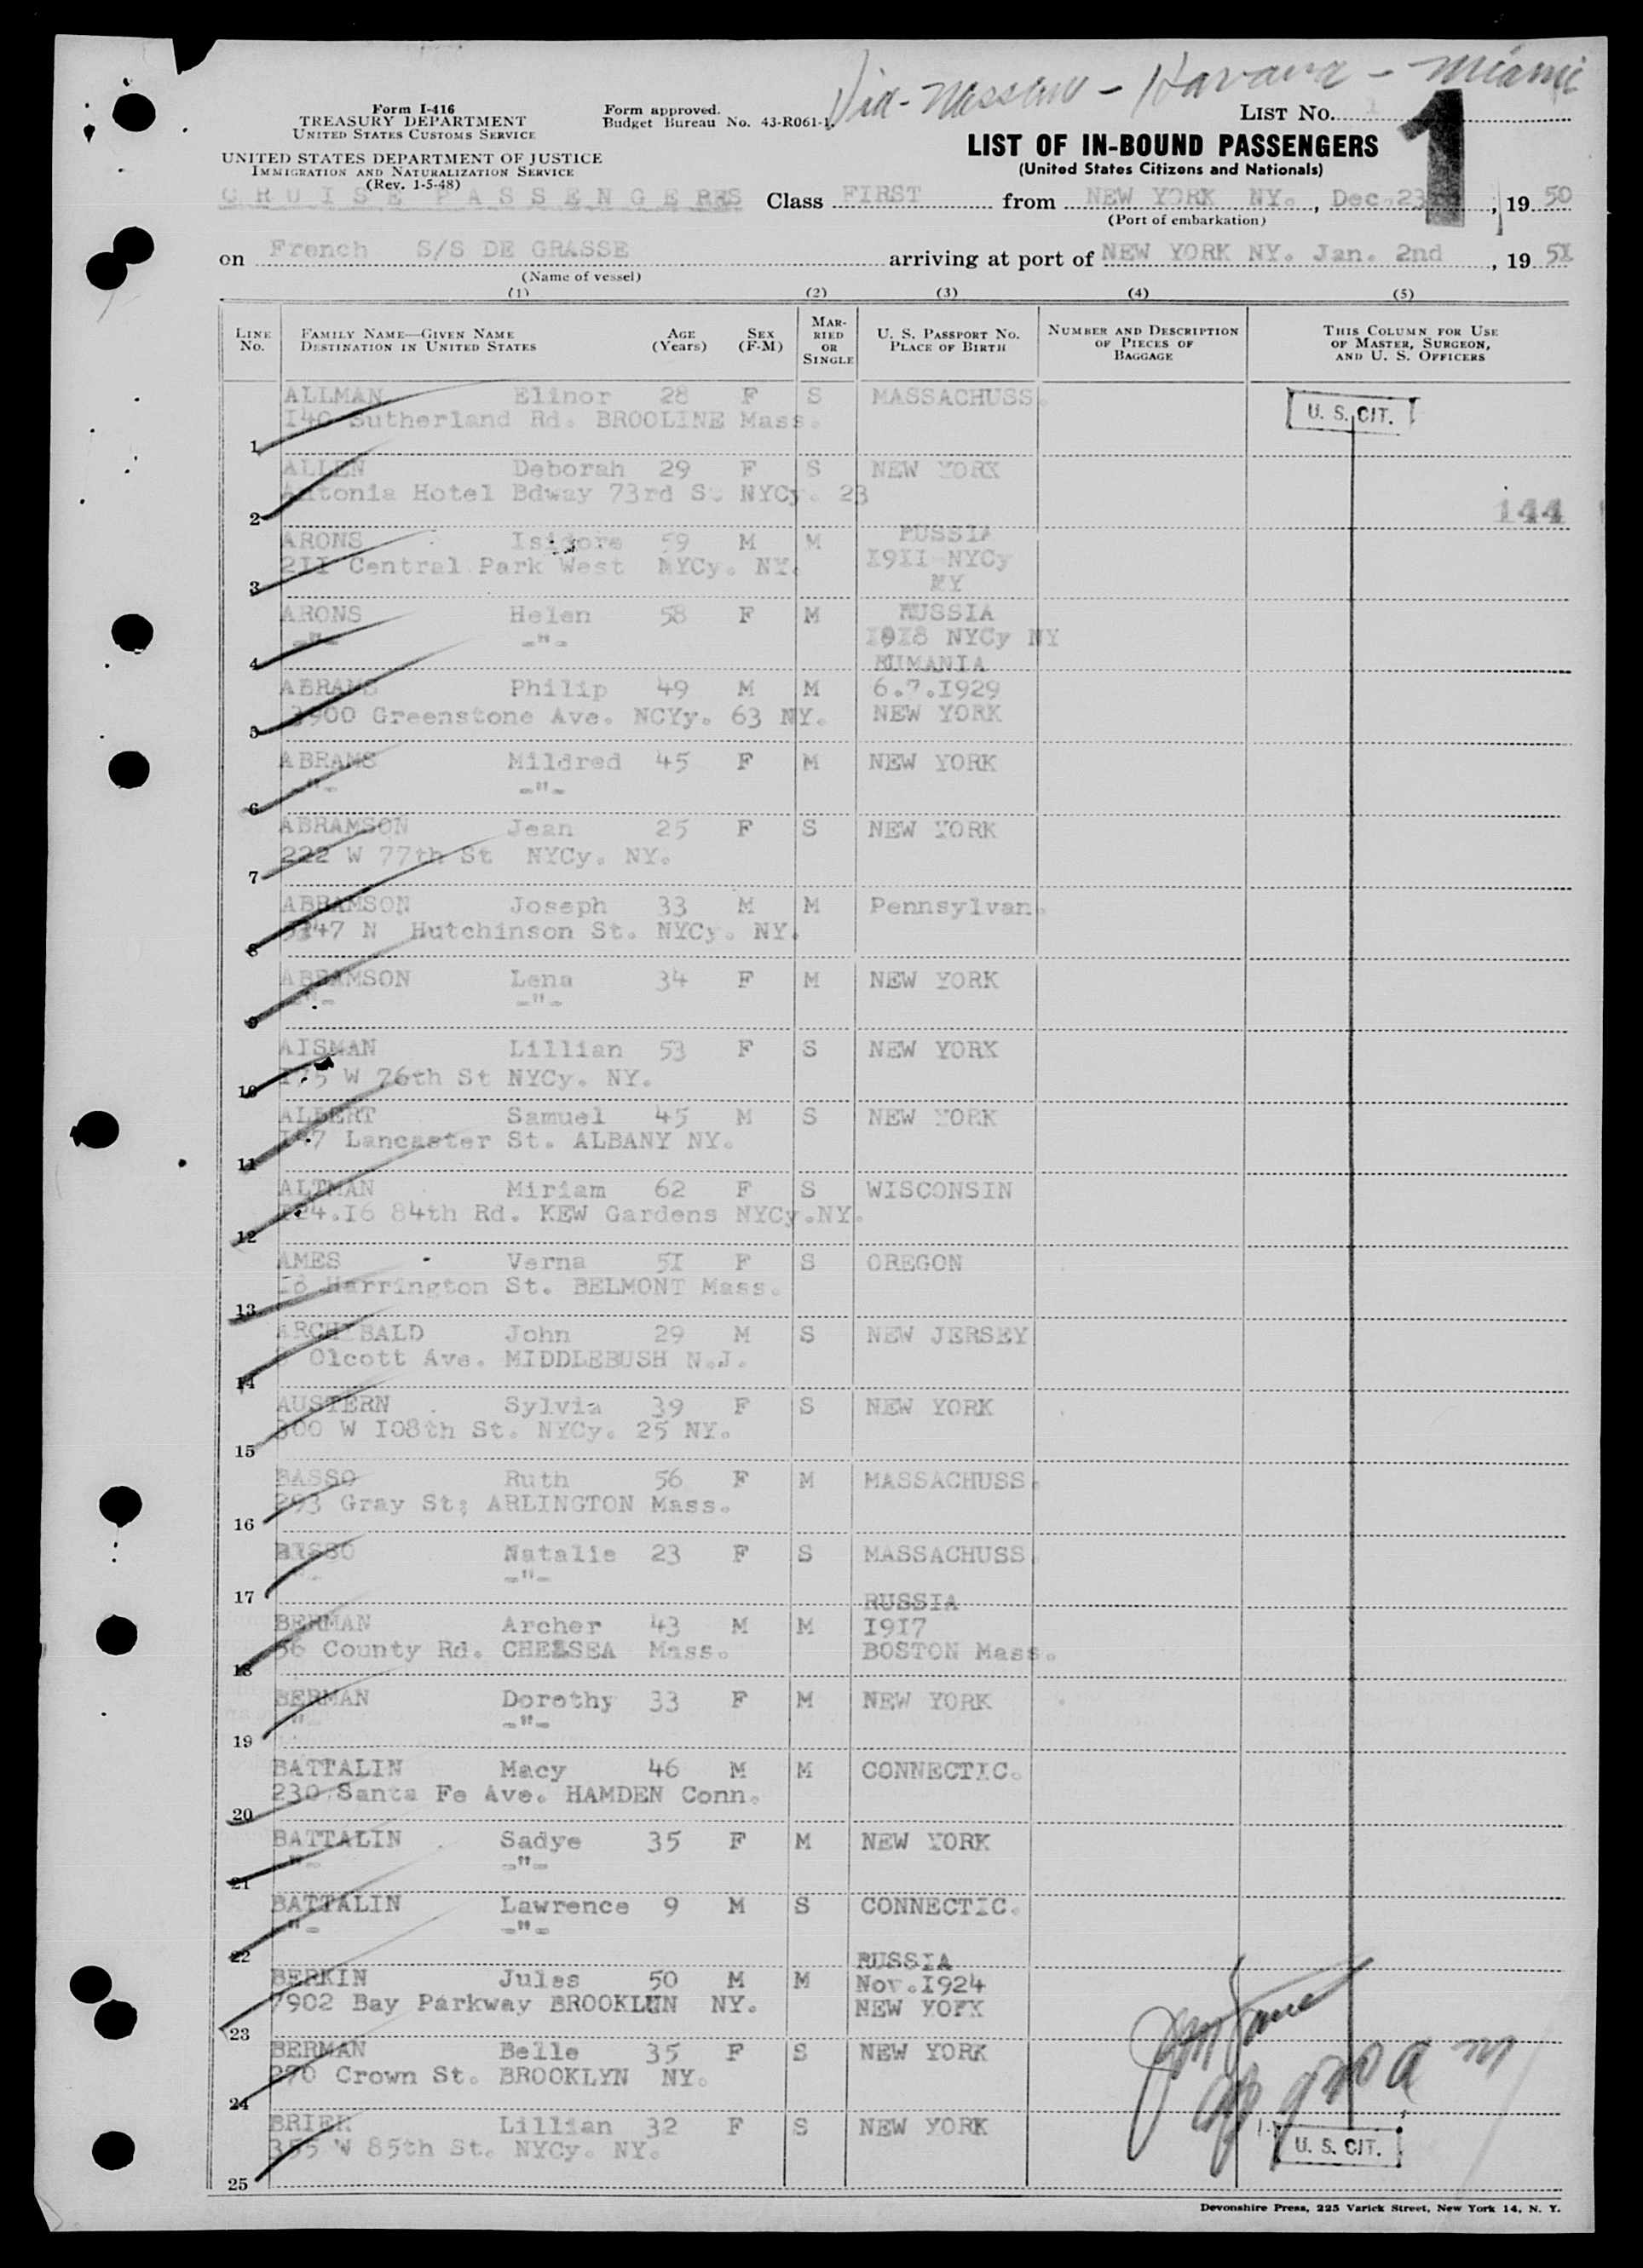 Via - Nassau - Havana - Miami
Form I-416
TREASURY DEPARTMENT
UNITED STATES CUSTOMS SERVICE
Form approved.
Budget Bureau No. 43-R061-1.
LIST NO. 1
1
UNITED STATES DEPARTMENT OF JUSTICE
IMMIGRATION AND NATURALIZATION SERVICE
(Rev. 1-5-48)
LIST OF IN-BOUND PASSENGERS
(United States Citizens and Nationals)
CRUISE PASSENGERS Class FIRST from NEW YORK NY., Dec.23rd, 19 50
(Port of embarkation)
on French S/S DE GRASSE arriving at port of NEW YORK NY. Jan. 2nd, 19 51
(Name of vessel)
(1) (2) (3) (4) (5)
LINE No. FAMILY NAME—GIVEN NAME DESTINATION IN UNITED STATES AGE (Years) SEX (F-M) MARRIED OR SINGLE U. S. PASSPORT NO. PLACE OF BIRTH NUMBER AND DESCRIPTION OF PIECES OF BAGGAGE THIS COLUMN FOR USE OF MASTER, SURGEON, AND U. S. OFFICERS
ALLMAN Elinor 28 F S MASSACHUSS. U. S. CIT.
140 Sutherland Rd. BROOLINE Mass.
1
ALLEN Deborah 29 F S NEW YORK
Antonia Hotel Bdway 73rd St NYCy. 23
2 144
RUSSIA
ARONS Isidore 59 M M
211 Central Park West NYCy. NY. 1911 NYCy
3 NY
ARONS Helen 58 F M RUSSIA
-"- -"- 1918 NYCy NY
4 RUMANIA
ABRAMS Philip 49 M M 6.7.1929
3900 Greenstone Ave. NCYy. 63 NY. NEW YORK
5
ABRAMS Mildred 45 F M NEW YORK
-"- -"-
6
ABRAMSON Jean 25 F S NEW YORK
222 W 77th St NYCy. NY.
7
ABRAMSON Joseph 33 M M Pennsylvan.
47 N Hutchinson St. NYCy. NY.
8
ABRAMSON Lena 34 F M NEW YORK
-"- -"-
9
AISMAN Lillian 53 F S NEW YORK
175 W 76th St NYCy. NY.
10
ALBERT Samuel 45 M S NEW YORK
Lancaster St. ALBANY NY.
11
ALTMAN Miriam 62 F S WISCONSIN
124.16 84th Rd. KEW Gardens NYCy.NY.
12
AMES Verna 51 F S OREGON
18 Harrington St. BELMONT Mass.
13
ARCHIBALD John 29 M S NEW JERSEY
Olcott Ave. MIDDLEBUSH N.J.
14
AUSTERN Sylvia 39 F S NEW YORK
300 W 108th St. NYCy. 25 NY.
15
BASSO Ruth 56 F M MASSACHUSS.
293 Gray St; ARLINGTON Mass.
16
BASSO Natalie 23 F S MASSACHUSS.
"- -"-
17 RUSSIA
BERMAN Archer 43 M M 1917
56 County Rd. CHELSEA Mass. BOSTON Mass.
18
BERMAN Dorothy 33 F M NEW YORK
"- -"-
19
BATTALIN Macy 46 M M CONNECTIC.
230 Santa Fe Ave. HAMDEN Conn.
20
BATTALIN Sadye 35 F M NEW YORK
"- -"-
21
BATTALIN Lawrence 9 M S CONNECTIC.
"- -"-
22 RUSSIA
BERKIN Jules 50 M M Nov.1924
7902 Bay Parkway BROOKLUN NY. NEW YORK
23
BERMAN Belle 35 F S NEW YORK
270 Crown St. BROOKLYN NY.
24
BRIER Lillian 32 F S NEW YORK
355 W 85th St. NYCy. NY. U. S. CIT.
25
Devonshire Press, 225 Varick Street, New York 14, N. Y.